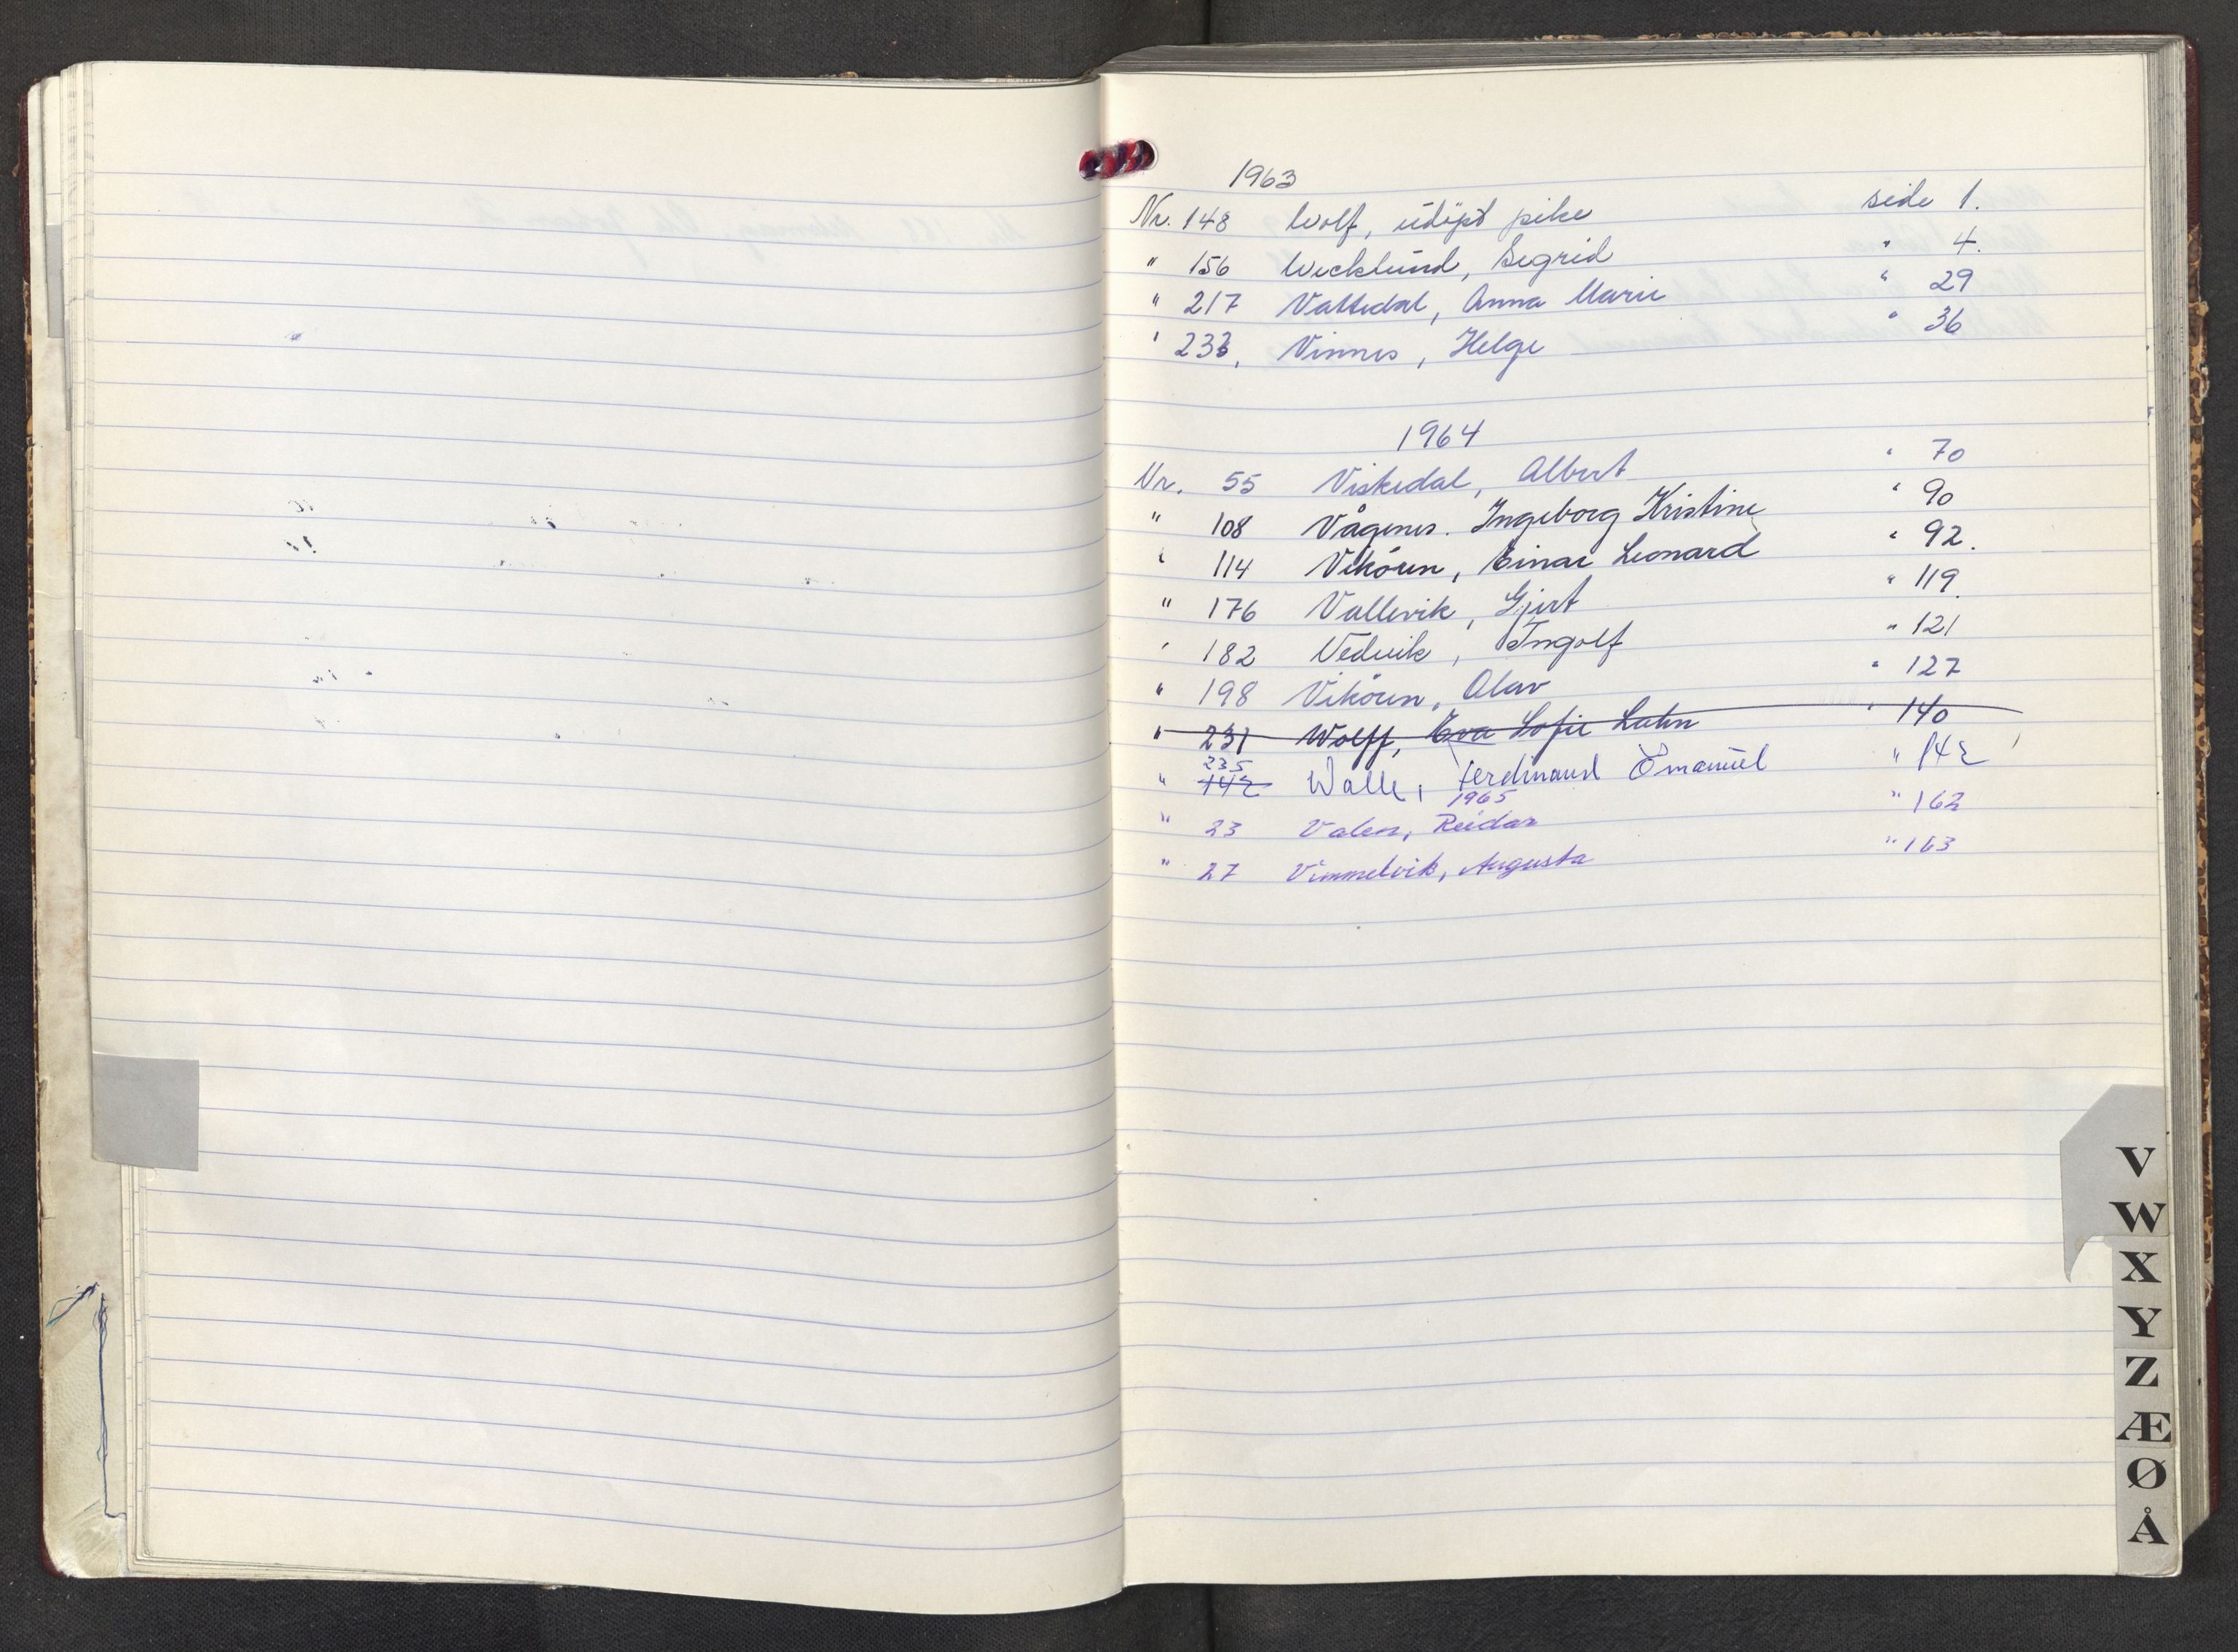 1963
Nr. 148 Wolf, udöpt pike side 1.
" 156 Wecklund, Sigrid " 4.
" 217 Vattedal, Anna Marie " 29
" 233, Vinnes, Helge " 36
1964
Nr. 55 Viskedal, Albert " 70
" 108 Vågenes. Ingeborg Kristine " 90
" 114 Vikören, Einar Leonard " 92.
" 176 Vallevik, Gjert " 119.
" 182 Vedvik, Ingolf " 121
" 198 Vikören, Olav " 127
" 231 Wolff, Eva Sofie Lahn " 140
235
" 142 Walle, Ferdinand Emanuel " 142
1965
" 23 Valen, Reidar " 162
" 27 Vimmelvik, Augusta " 163
V
W
X
Y
Z
Æ
Ø
Å